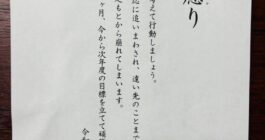 憩り
考えて行動しましょう。
認に追いまわされ、遠い先のことまで
足もとから崩れてしまいます。
ヶ月、今から次年度の目標を立てて頑
令和